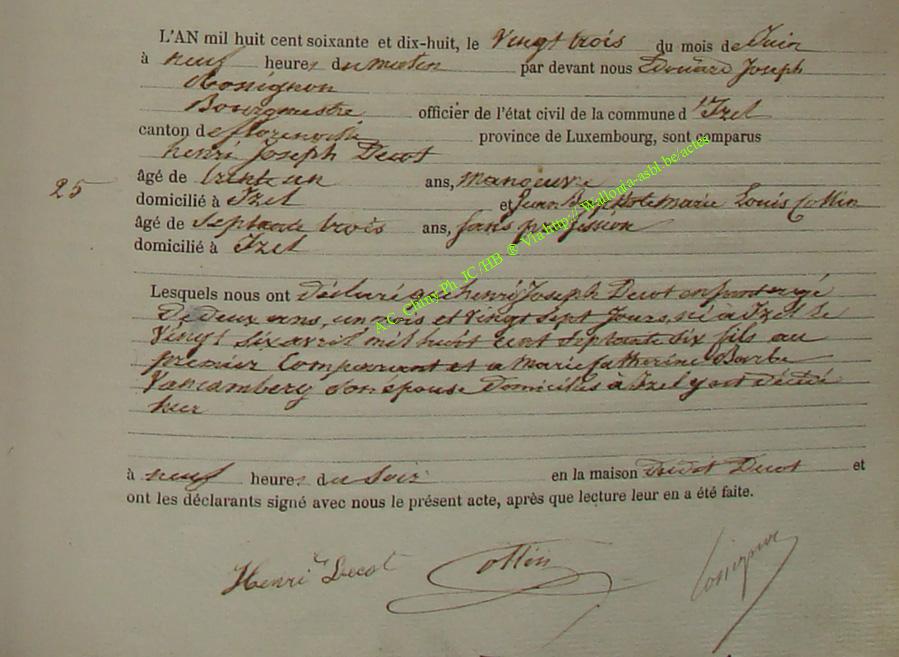 L'AN mil huit cent soixante et dix-huit, le Vingt trois du mois de Juin
à neuf heures du matin par devant nous Edouard Joseph
Rossignon
Bourgmestre officier de l'état civil de la commune d'Izel
canton de florenville province de Luxembourg, sont comparus
henri Joseph Decot
25
âgé de trente un ans, manoeuvre
domicilié à Izel et Jean Baptiste Marie Louis Collin
âgé de Septante trois ans, sans profession
domicilié à Izel
Lesquels nous ont déclaré que henri Joseph Decot
De deux ans, un mois et vingt sept Jours, né à Izel le
Vingt Six avril mil huit cent septante Six fils au
premier Comparant et a Marie Catherine Barbe
Vancamberg Son épouse Domiciliés à Izel y est décédé
hier
à neuf heures du Soir en la maison Dudit Decot et
ont les déclarants signé avec nous le présent acte, après que lecture leur en a été faite.
Henri Decot Collin Rossignon
A.C. Chiny Ph JC /HB @ Via http://Wallonia-asbl.be/actes